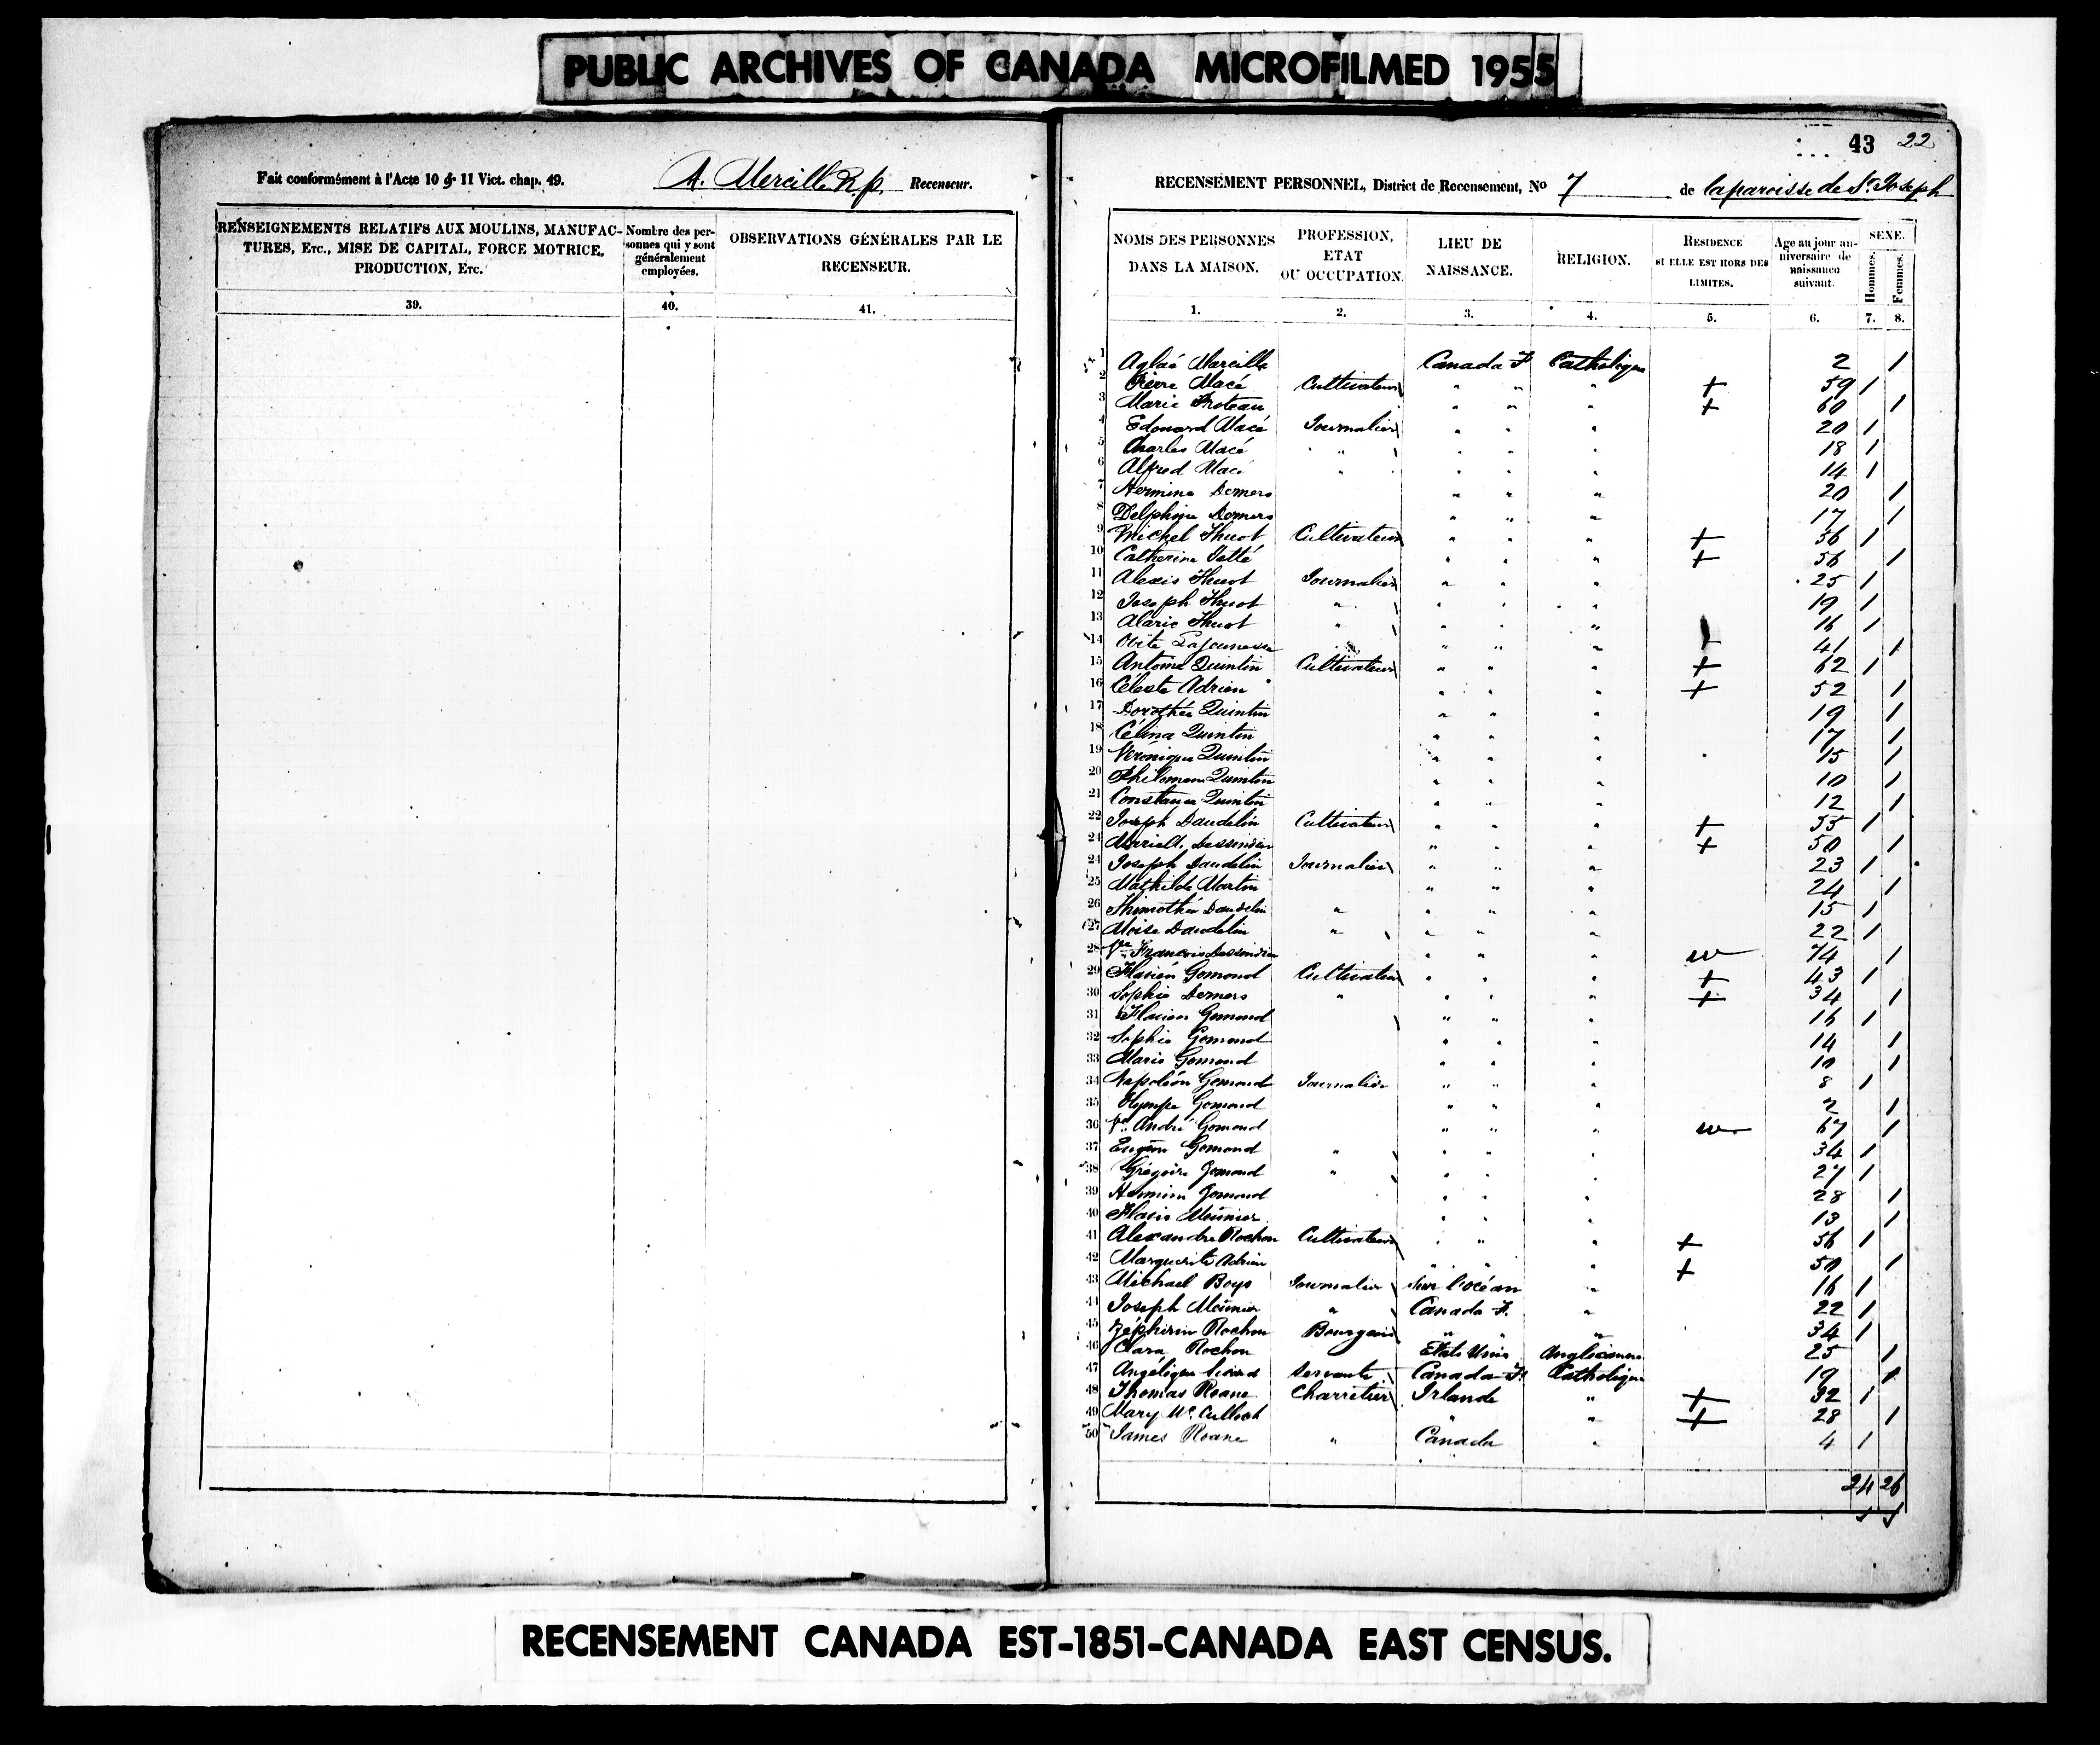 PUBLIC ARCHIVES OF CANADA MICROFILMED 1955
Fait conformément à l'Acte 10 & 11 Vict. chap. 49. A. Mercille Recenseur.
RENSEIGNEMENTS RELATIFS AUX MOULINS, MANUFACTURES, ETC., MISE DE CAPITAL, FORCE MOTRICE, PRODUCTION, ETC.
Nombre des personnes qui y sont généralement employées.
OBSERVATIONS GÉNÉRALES PAR LE RECENSEUR.
39. 40. 41.
43 22
RECENSEMENT PERSONNEL, District de Recensement, No 7 de la paroisse de St. Joseph
NOMS DES PERSONNES DANS LA MAISON.
PROFESSION, ETAT OU OCCUPATION.
LIEU DE NAISSANCE.
RELIGION.
RESIDENCE SI ELLE EST HORS DES LIMITES.
Age au jour anniversaire de naissance suivant.
SEXE.
Hommes. Femmes.
1. 2. 3. 4. 5. 6. 7. 8.
1 Aglaé Marcille Canada F Catholique 2 1
2 Pierre Macé Cultivateur " " " + 59 1
3 Marie Proteau " " " + 60 1
4 Edouard Macé Journalier " " " 20 1
5 Charles Macé " " " " 18 1
6 Alfred Macé " " " " 14 1
7 Hermine Demers " " " 20 1
8 Delphine Demers " " " 17 1
9 Michel Thuot Cultivateur " " " + 56 1
10 Catherine Tetté " " " + 56 1
11 Alexis Thuot Journalier " " " 25 1
12 Joseph Thuot " " " " 19 1
13 Alaric Thuot " " " " 16 1
14 Lajeunesse " " " 41 1
15 Antoine Quintin Cultivateur " " " + 62 1
16 Céleste Adrien " " " + 52 1
17 Dorothée Quintin " " " 19 1
18 Célina Quintin " " " 17 1
19 Véronique Quintin " " " 15 1
20 Philomene Quintin " " " 10 1
21 Constance Quintin " " " 12 1
22 Joseph Daudelin Cultivateur " " " + 55 1
24 " " " + 50 1
24 Joseph Daudelin Journalier " " " 23 1
25 Mathilde Martin " " " 24 1
26 Thimothée Daudelin " " " " 15 1
27 Moise Daudelin " " " " 22 1
28 Ve. Francois " " " w 74 1
29 Flavien Gomond Cultivateur " " " + 43 1
30 Sophie Demers " " " " + 34 1
31 Flavien Gomond " " " 16 1
32 Sophie Gomond " " " 14 1
33 Marie Gomond " " " 10 1
34 Napoléon Gomond Journalier " " " 8 1
35 Olympe Gomond " " " 2 1
36 Ve. André Gomond " " " w 67 1
37 Eugène Gomond " " " " 34 1
38 Grégoire Gomond " " " " 27 1
39 Gomond " " " 28 1
40 Meunier " " " 13 1
41 Alexandre Rochon Cultivateur " " " + 56 1
42 Marguerite Adrien " " " + 50 1
43 Michael Boys Journalier Sur l'océan " 16 1
44 Joseph Meunier " Canada F. " 22 1
45 Zéphirin Rochon Bourgeois " " " 34 1
46 Clara Rochon Etats Unis Anglicanne 25 1
47 Angélique Servante Canada F. Catholique 19 1
48 Thomas Roane Charretier Irlande " + 32 1
49 Mary Mc. Culloch " " + 28 1
50 James Roane " Canada " 4 1
24 26
RECENSEMENT CANADA EST-1851-CANADA EAST CENSUS.